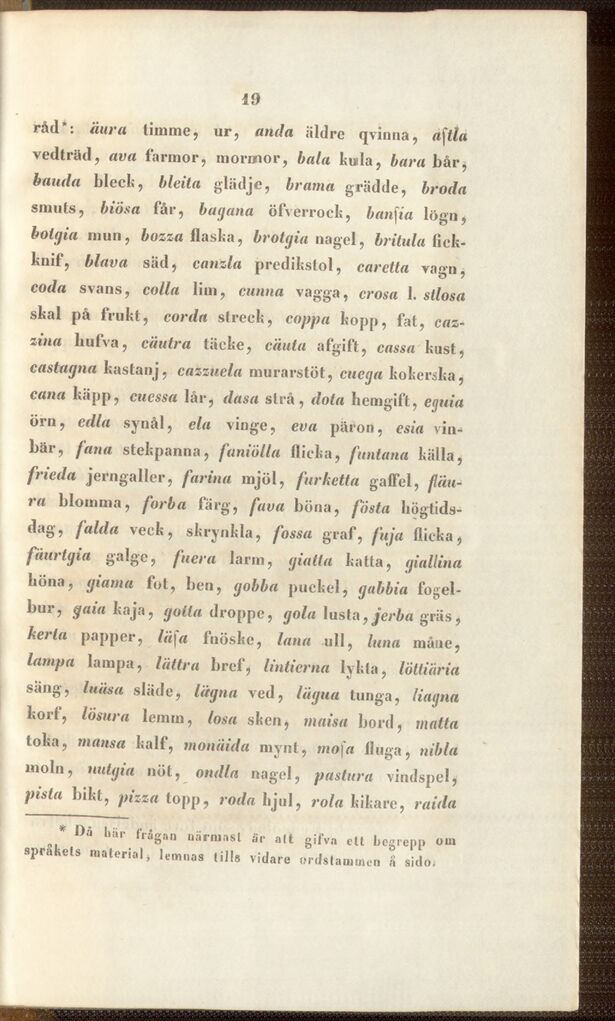 19
råd*: äura timme, ur, anda äldre qvinna, aſtla
vedträd, ava farmor, mormor, bala kula, bara bår,
bauda bleck, bleita glädje, brama grädde, broda
smuts, biösa får, bagana öfverrock, banſia lögn,
botgia mun, bozza flaska, brotgia nagel, britula fick-
knif, blava säd, canzla predikstol, caretta vagn,
coda svans, colla lim, cunna vagga, crosa l. stlosa
skal på frukt, corda streck, coppa kopp, fat, caz-
zina hufva, cäutra täcke, cäuta afgift, cassa kust,
castagna kastanj, cazzuela murarstöt, cuega kokerska,
cana käpp, cuessa lår, dasa strå, dota hemgift, eguia
örn, edla synål, ela vinge, eva päron, esia vin-
bär, fana stekpanna, faniölla flicka, funtana källa,
frieda jerngaller, farina mjöl, furketta gaffel, fläu-
ra blomma, forba färg, fava böna, fösta högtids-
dag, falda veck, skrynkla, fossa graf, fuja flicka,
fäurtgia galge, fuera larm, giatta katta, giallina
höna, giama fot, ben, gobba puckel, gabbia fogel-
bur, gaia kaja, gotta droppe, gola lusta, jerba gräs,
kerta papper, läſa fnöske, lana ull, luna måne,
lampa lampa, lättra bref, lintierna lykta, löttiäria
säng, luäsa släde, lägna ved, lägua tunga, liagna
korf, lösura lemm, losa sken, maisa bord, matta
toka, mansa kalf, monäida mynt, moſa fluga, nibla
moln, nutgia nöt, ondla nagel, pastura vindspel,
pista bikt, pizza topp, roda hjul, rola kikare, raida
* Då här frågan närmast är att gifva ett begrepp om
språkets material, lemnas tills vidare ordstammen å sido.